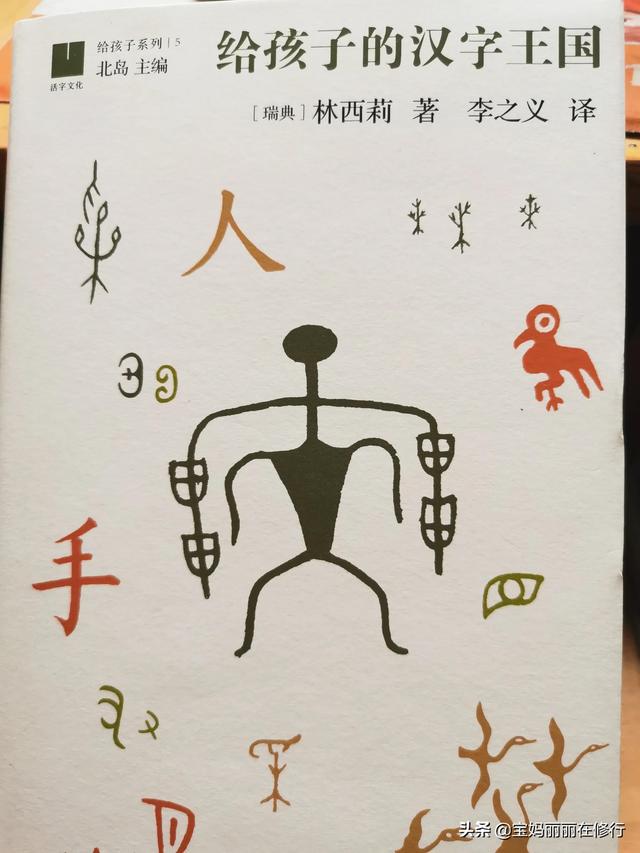 给孩子系列 | 5
北岛 主编
活字文化
给孩子的汉字王国
[ 瑞典 ] 林西莉 著 李之义 译
人
手
头条 @宝妈丽丽在修行